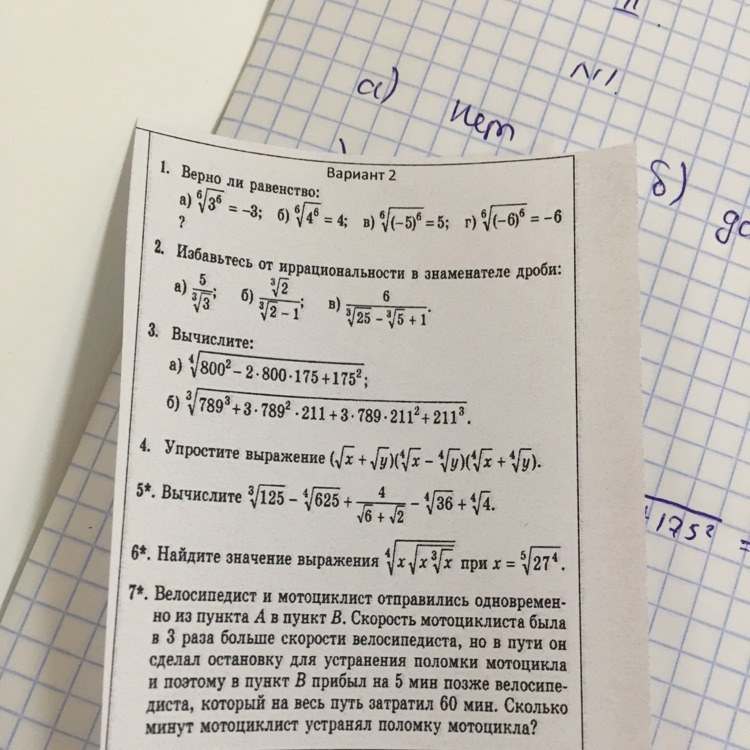 N1.
а) нет
б)
Вариант 2
1. Верно ли равенство:
а) ⁶√(3⁶) = –3; б) ⁶√(4⁶) = 4; в) ⁶√((–5)⁶) = 5; г) ⁶√((–6)⁶) = –6
?
2. Избавьтесь от иррациональности в знаменателе дроби:
а) 5/∛3; б) ∛2/(∛2 – 1); в) 6/(∛25 – ∛5 + 1).
3. Вычислите:
а) ⁴√(800² – 2·800·175 + 175²);
б) ∛(789³ + 3·789²·211 + 3·789·211² + 211³).
4. Упростите выражение (√x + √y)(⁴√x – ⁴√y)(⁴√x + ⁴√y).
5*. Вычислите ∛125 – ⁴√625 + 4/(√6 + √2) – ⁴√36 + ⁴√4.
6*. Найдите значение выражения ⁴√(x√(x∛x)) при x = ⁵√(27⁴).
7*. Велосипедист и мотоциклист отправились одновремен-
но из пункта A в пункт B. Скорость мотоциклиста была
в 3 раза больше скорости велосипедиста, но в пути он
сделал остановку для устранения поломки мотоцикла
и поэтому в пункт B прибыл на 5 мин позже велосипе-
диста, который на весь путь затратил 60 мин. Сколько
минут мотоциклист устранял поломку мотоцикла?
175² =